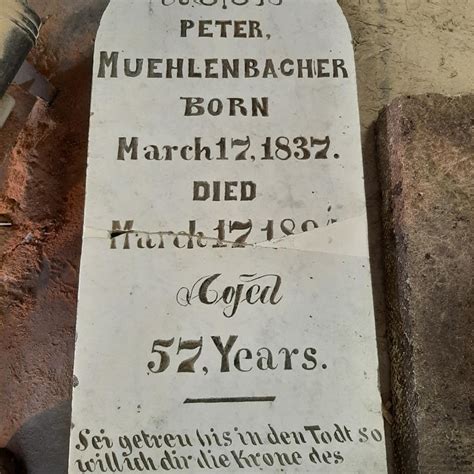 PETER,
MUEHLENBACHER
BORN
March 17, 1837.
DIED
March 17
Aged
57, Years.
Sei getreu bis in den Todt so
will ich dir die Krone des